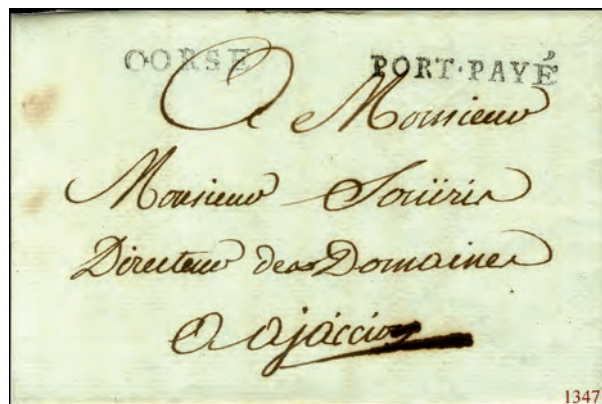 CORSE PORT·PAYÉ
A Monsieur
Monsieur Souiris
Directeur des Domaines
a ajaccio
1347